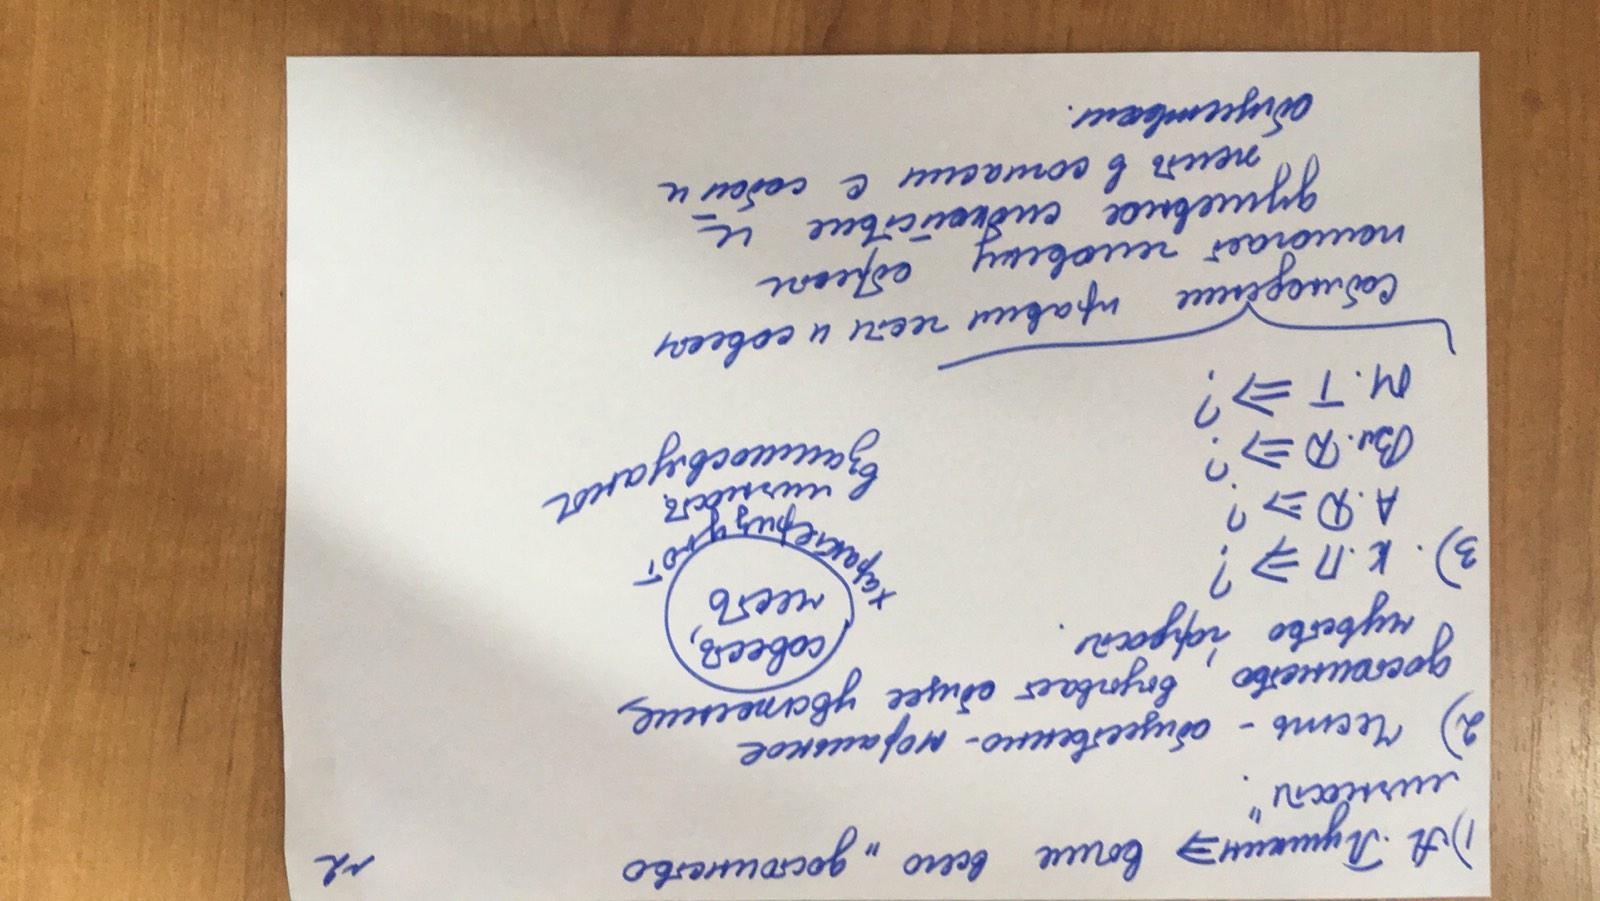 №2
1) А. Пушкин ⇒ выше всего „достоинство
личности".
2) Честь - общественно-моральное
достоинство, внушает общее уважение,
чувство гордости.
совесть,
честь
характеризуют
личность
взаимосвязаны
3). К. П ⇒ ?
А. Д ⇒ ?
Вл. Д ⇒ ?
М. Т ⇒ ?
Соблюдение правил чести и совести
помогает человеку обрести
душевное спокойствие и
жить в согласии с собой и
обществом.